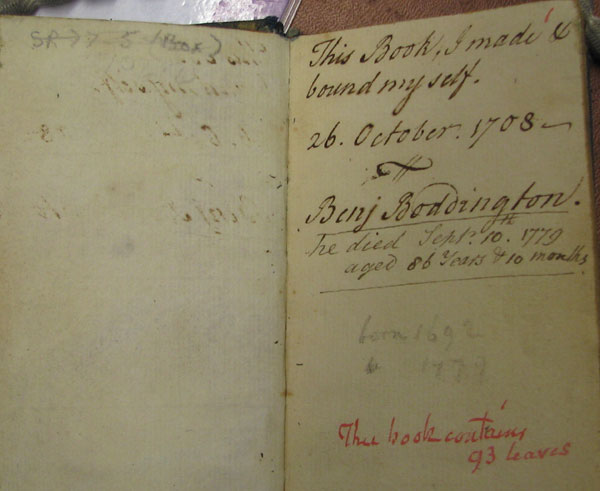 This Book, I made &
bound my self.
26. October. 1708
Benj Boddington.
he died Sept. 10th. 1779
aged 86 Years & 10 months
born 1692
1779
This book contains
93 leaves